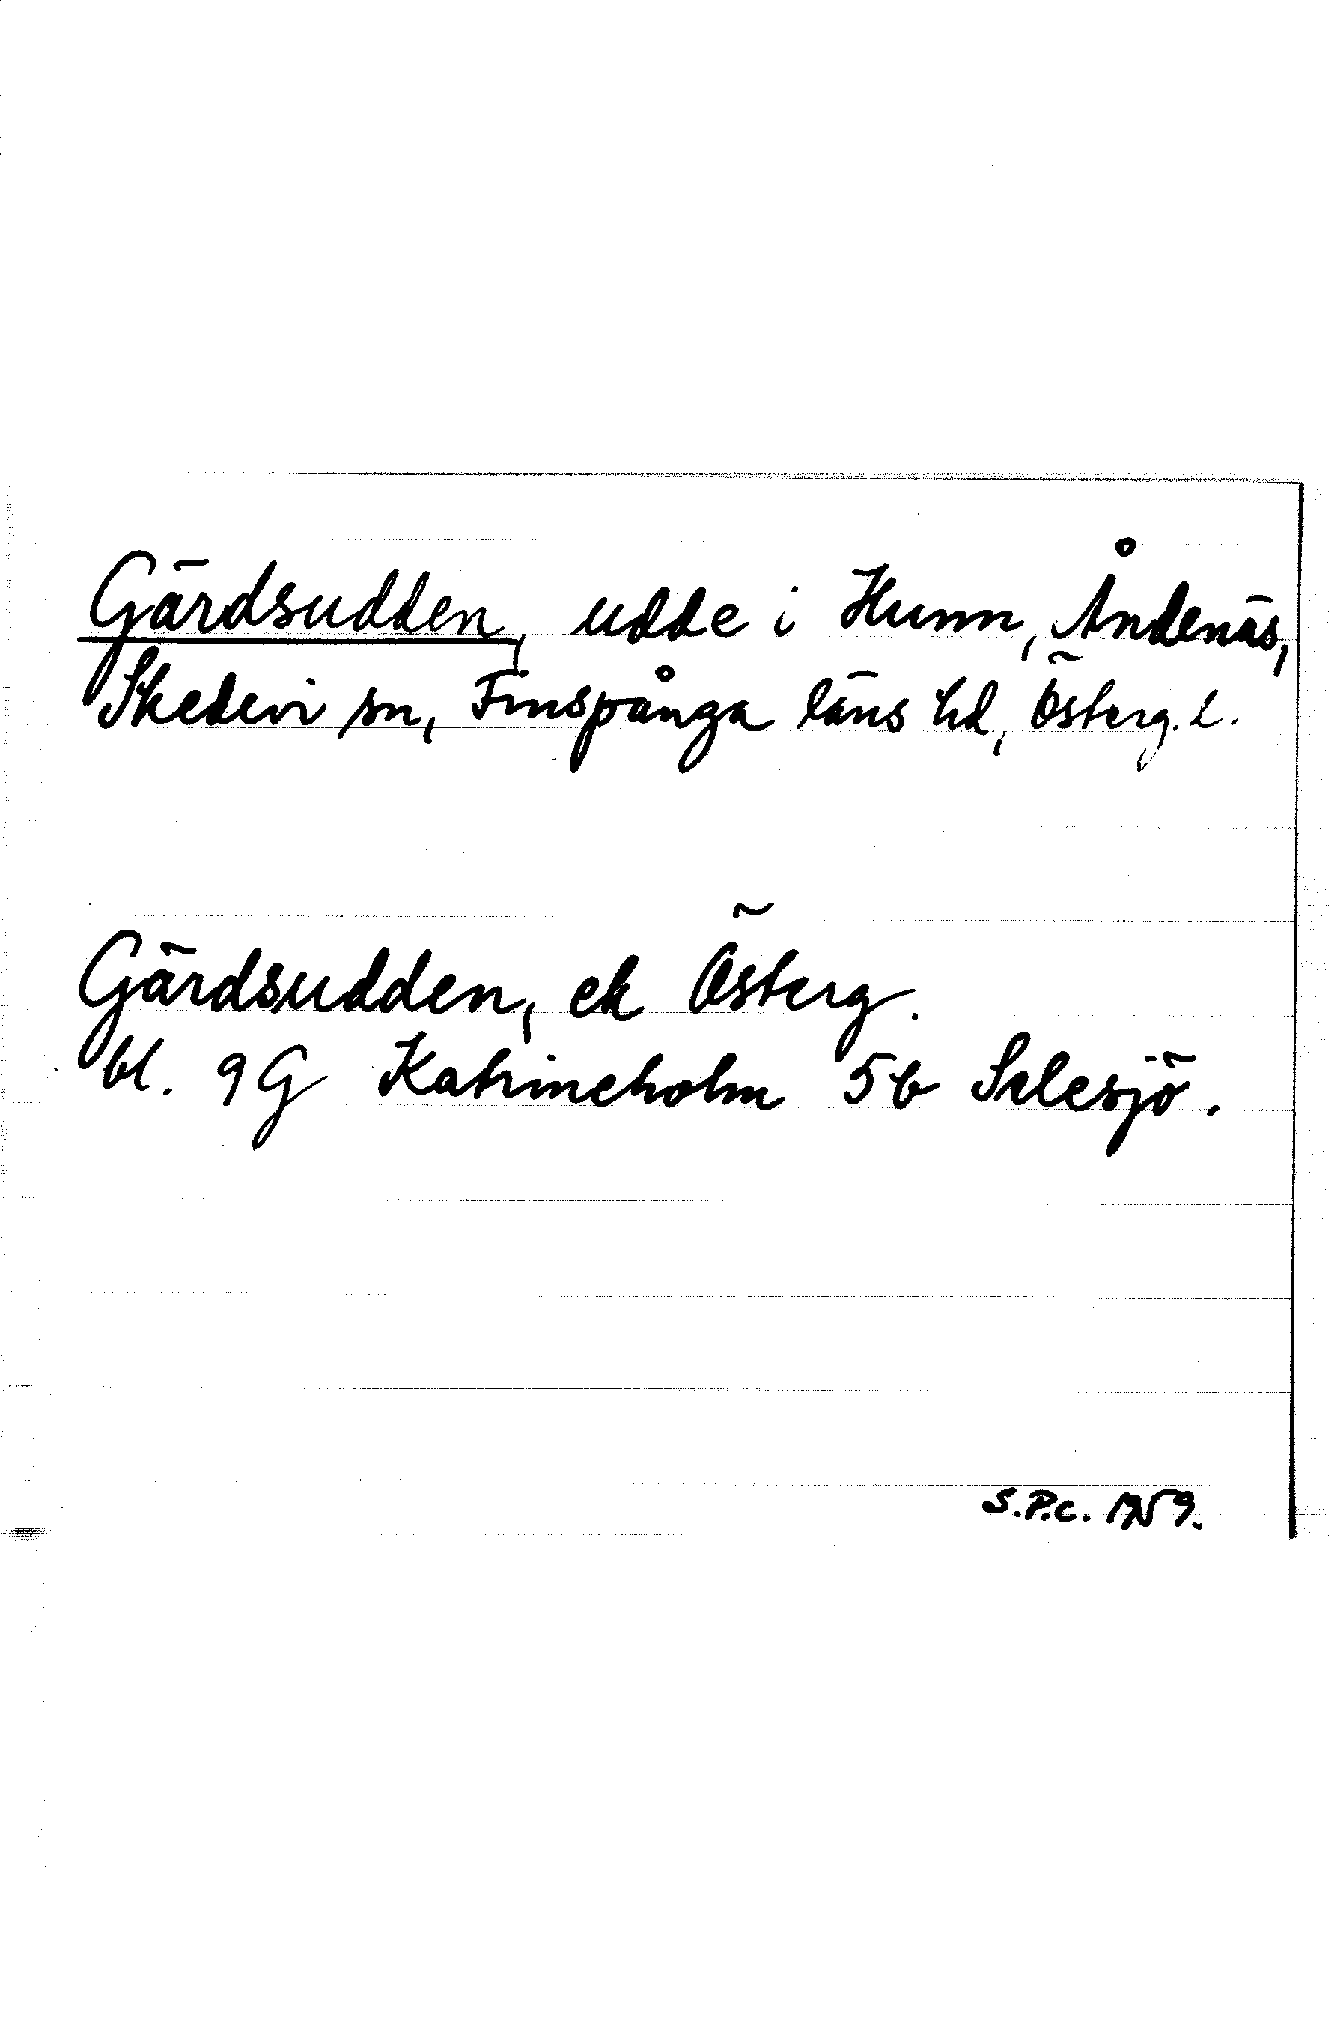 Gärdsudden, udde i Hunn, Åndenäs,
Skedevi sn, Finspånga läns hd, Österg. l.
Gärdsudden, ek Österg.
bl. 9G Katrineholm 5b Salesjö.
S.P.C. 1959.